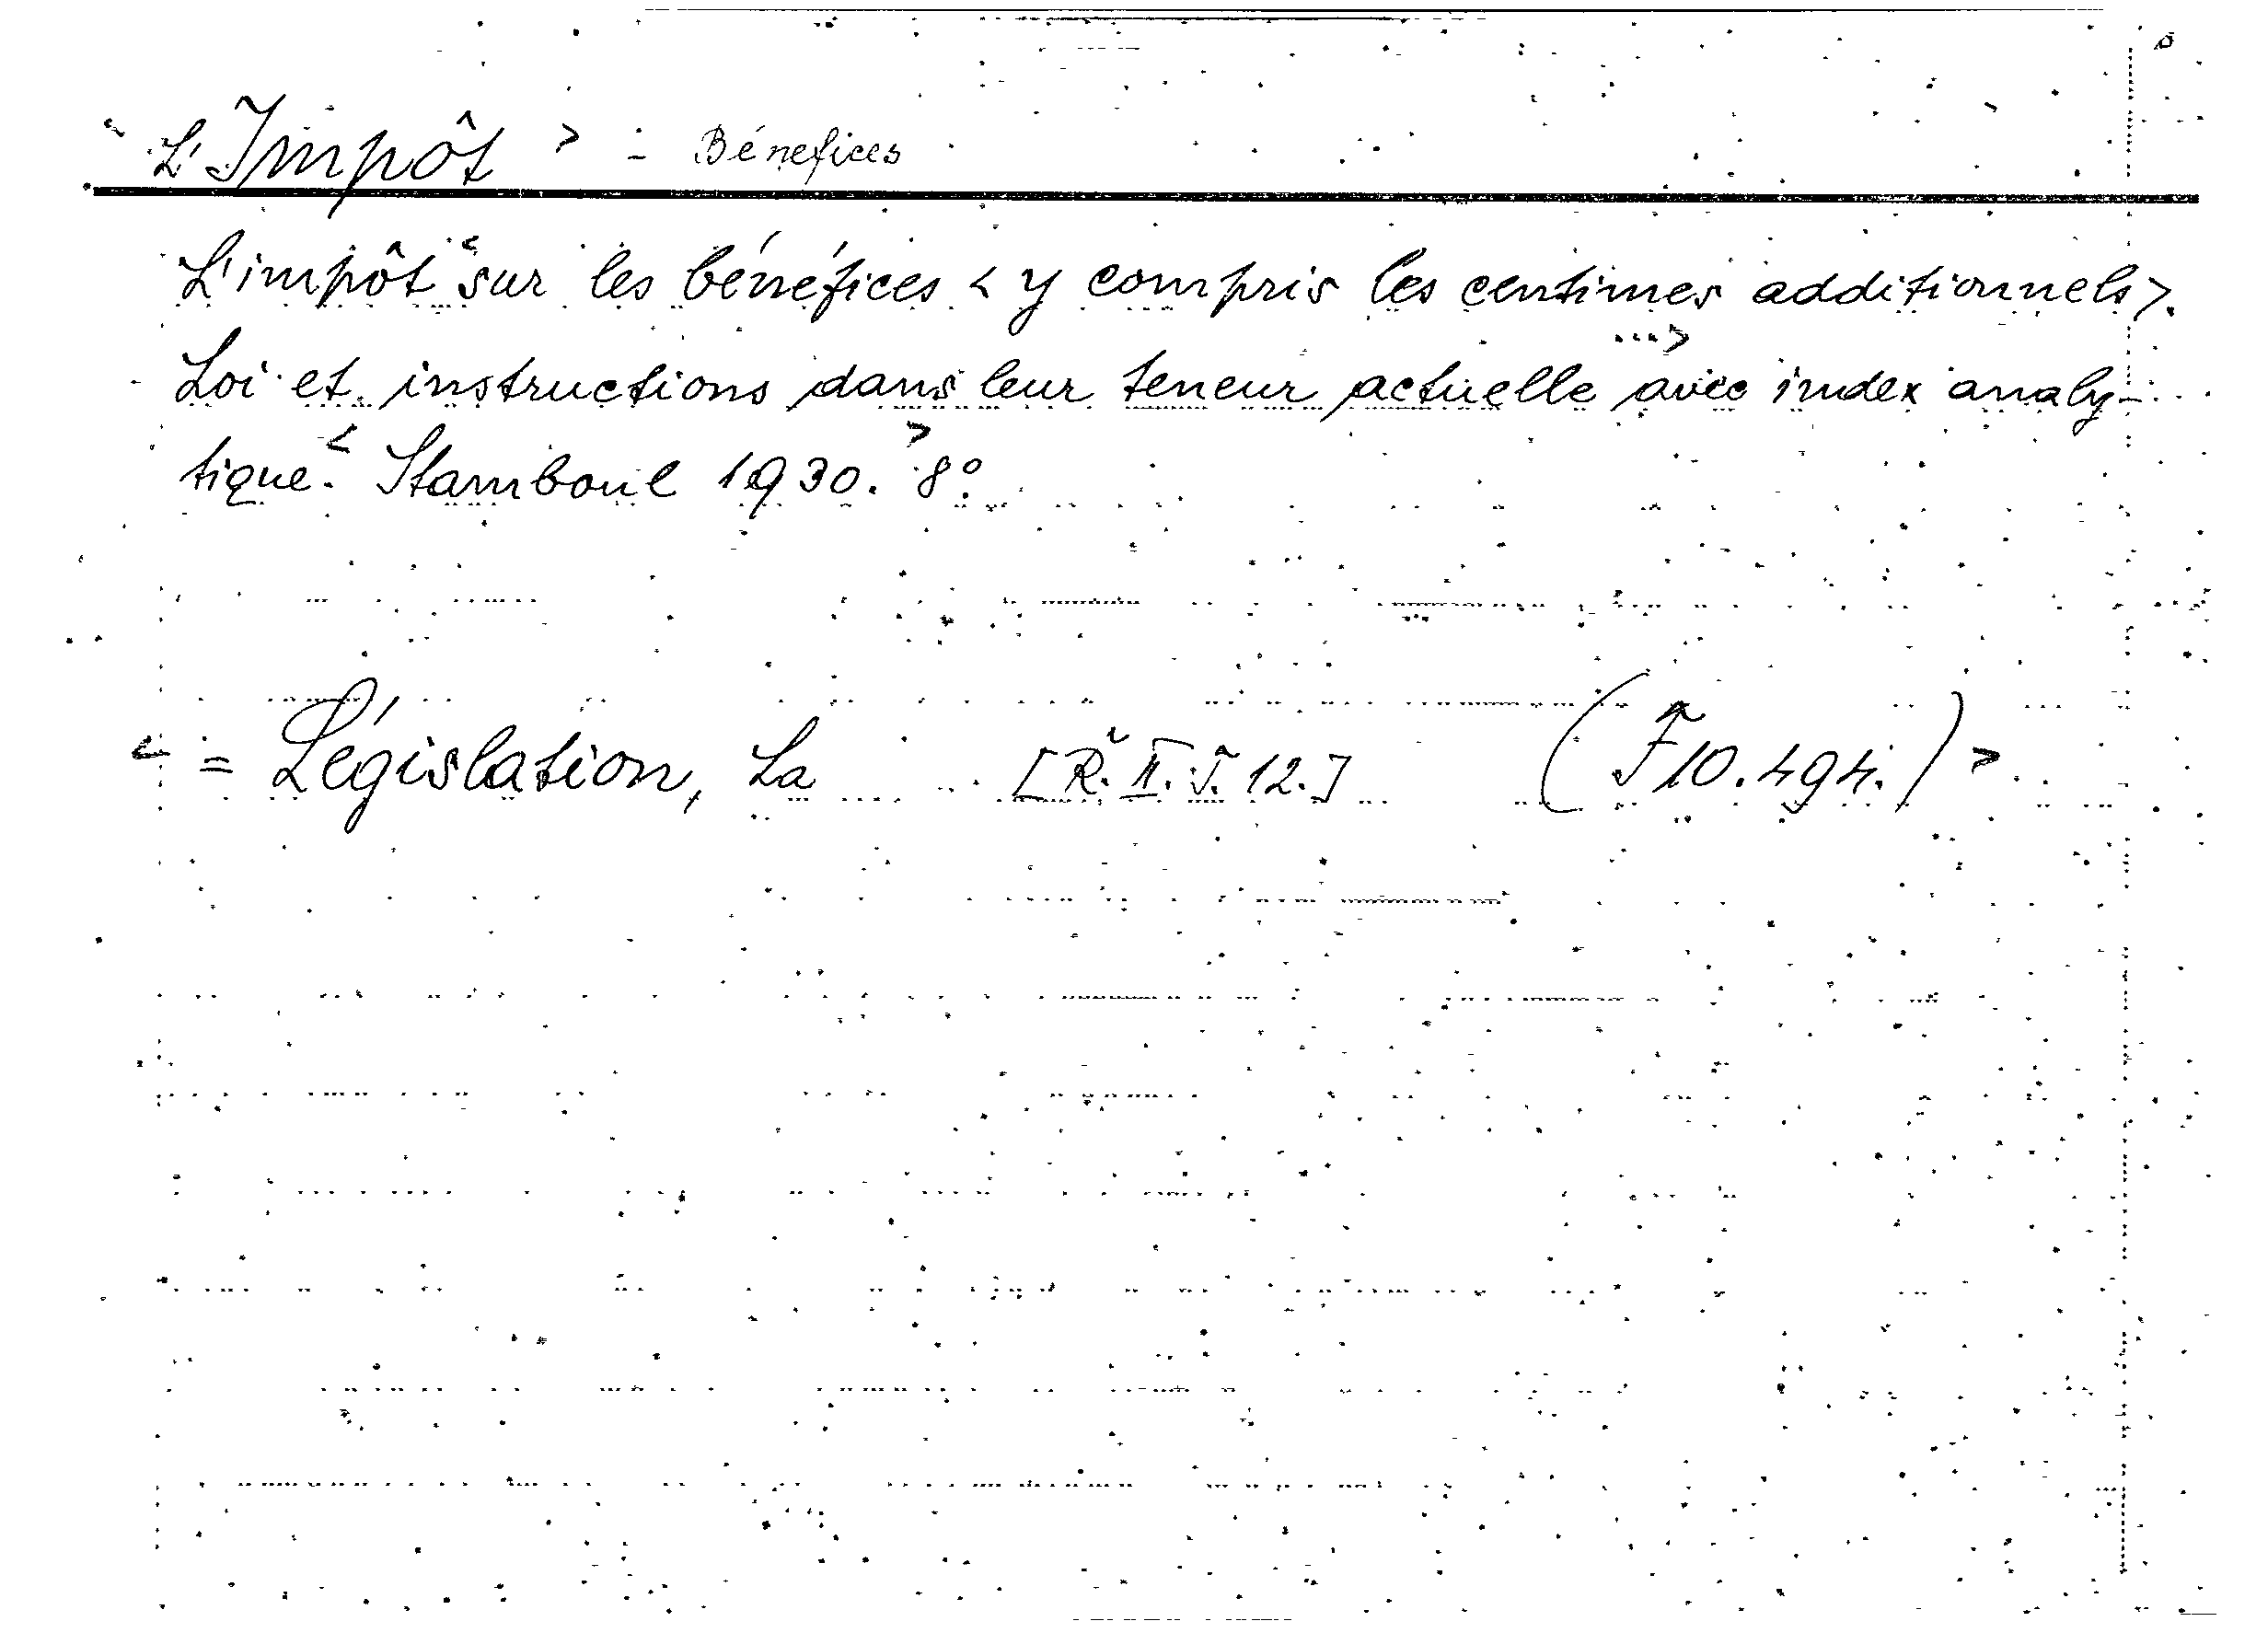 < L'Impôt > : - Bénéfices
L'impôt < sur les bénéfices < y compris les centimes additionnels >.
Loi et instructions dans leur teneur actuelle ...> avec index analy-
tique. < Stamboul 1930. > 8°.
< = Législation, La [R. II. T. 12.] (F 10.494.) >